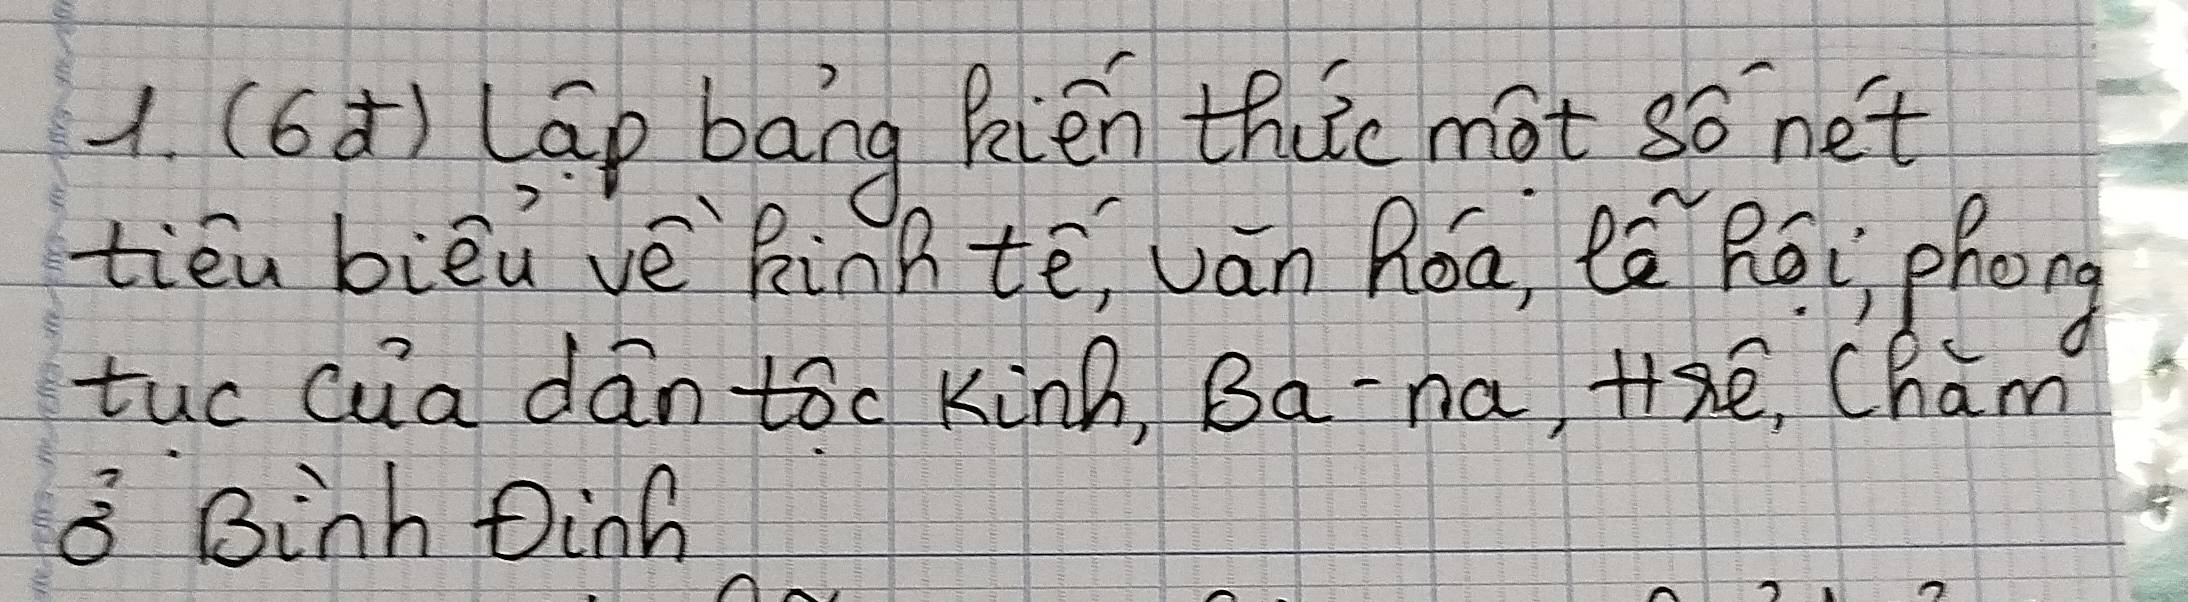 1. (6đ) Lập bảng kiến thức một số nét
tiêu biểu về kinh tế, văn hóa, lễ hội, phong
tục của dân tộc Kinh, Ba-na, Hrê, Chăm
ở Bình Định